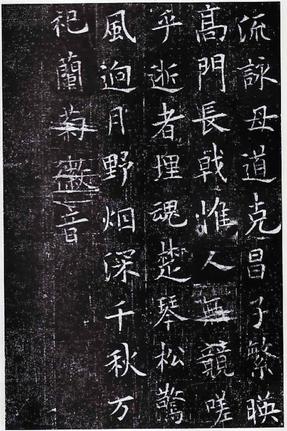 流詠母道克昌子繁暎
髙門長戟惟人無競嗟
乎逝者埋魂楚琴松驚
風逈月野烟深千秋万
祀蘭菊徽音